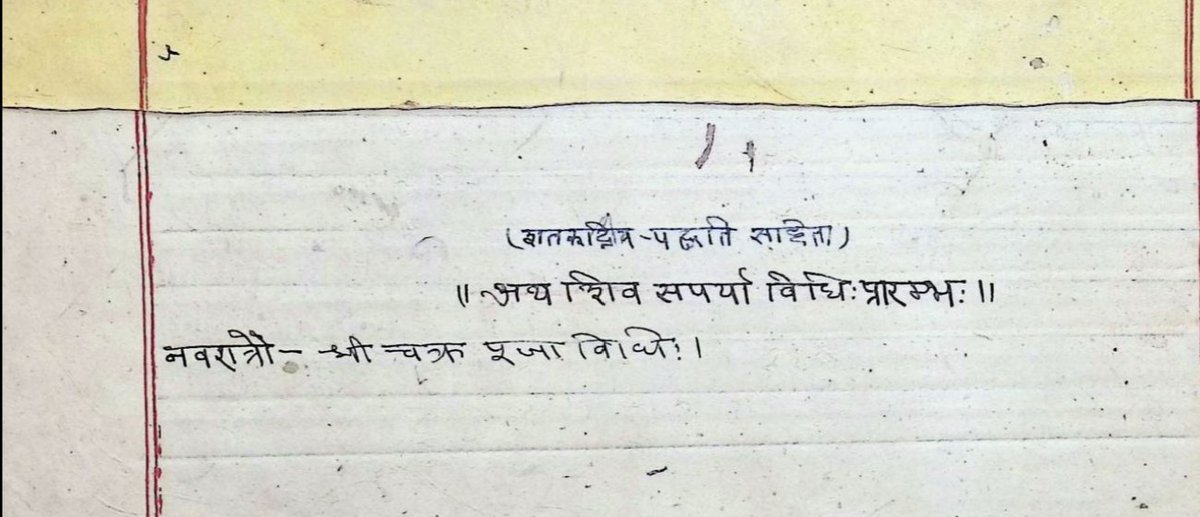 (शतरुद्रीय-पद्धति सहिता)
॥ अथ शिव सपर्या विधिः प्रारम्भः ॥
नवरात्रौ - श्री चक्र पूजा विधिः ।